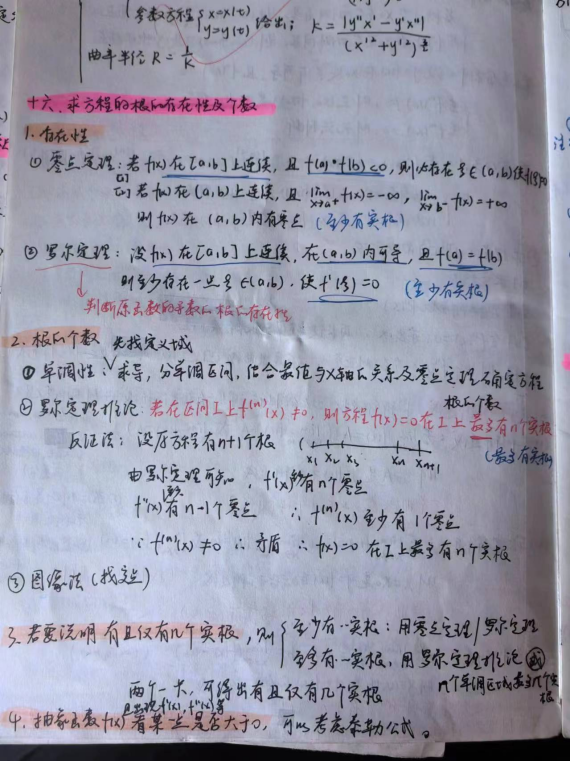 参数方程 { x=x(t) y=y(t) 给出: K = |y''x' - y'x''| / (x'²+y'²)^{3/2}
曲率半径 R = 1/K
十六、求方程的根的存在性及个数
1. 存在性
① 零点定理: 若f(x)在[a,b]上连续, 且 f(a)·f(b)<0, 则必存在ξ∈(a,b)使f(ξ)=0
若f(x)在(a,b)上连续, 且 lim x→a+ f(x)=-∞, lim x→b- f(x)=+∞
则f(x)在(a,b)内有零点 (至少有实根)
② 罗尔定理: 设f(x)在[a,b]上连续, 在(a,b)内可导, 且f(a)=f(b)
则至少存在一点ξ∈(a,b), 使f'(ξ)=0 (至少有实根)
判断原函数的导数的根的存在性
2. 根的个数 先找定义域
① 单调性: 求导, 分单调区间, 结合最值与X轴的关系及零点定理确定方程
根的个数
② 罗尔定理推论: 若在区间I上f⁽ⁿ⁾(x)≠0, 则方程f(x)=0在I上最多有n个实根
反证法: 设原方程有n+1个根 x₁ x₂ x₃ xₙ xₙ₊₁ (最多有实根)
由罗尔定理可知, f'(x)至少有n个零点
f''(x)至少有n-1个零点 ∴ f⁽ⁿ⁾(x)至少有1个零点
∵ f⁽ⁿ⁾(x)≠0 ∴ 矛盾 ∴ f(x)=0 在I上最多有n个实根
③ 图像法 (找交点)
3. 若要说明有且仅有几个实根, 则 { 至少有一实根: 用零点定理/罗尔定理
至多有一实根, 用罗尔定理推论 或
n个单调区域最多n个实根
两个一卡, 可得出有且仅有几个实根
且出现f'(x), f''(x)等
4. 抽象函数f(x)看某一点是否大于0, 可以考虑泰勒公式。